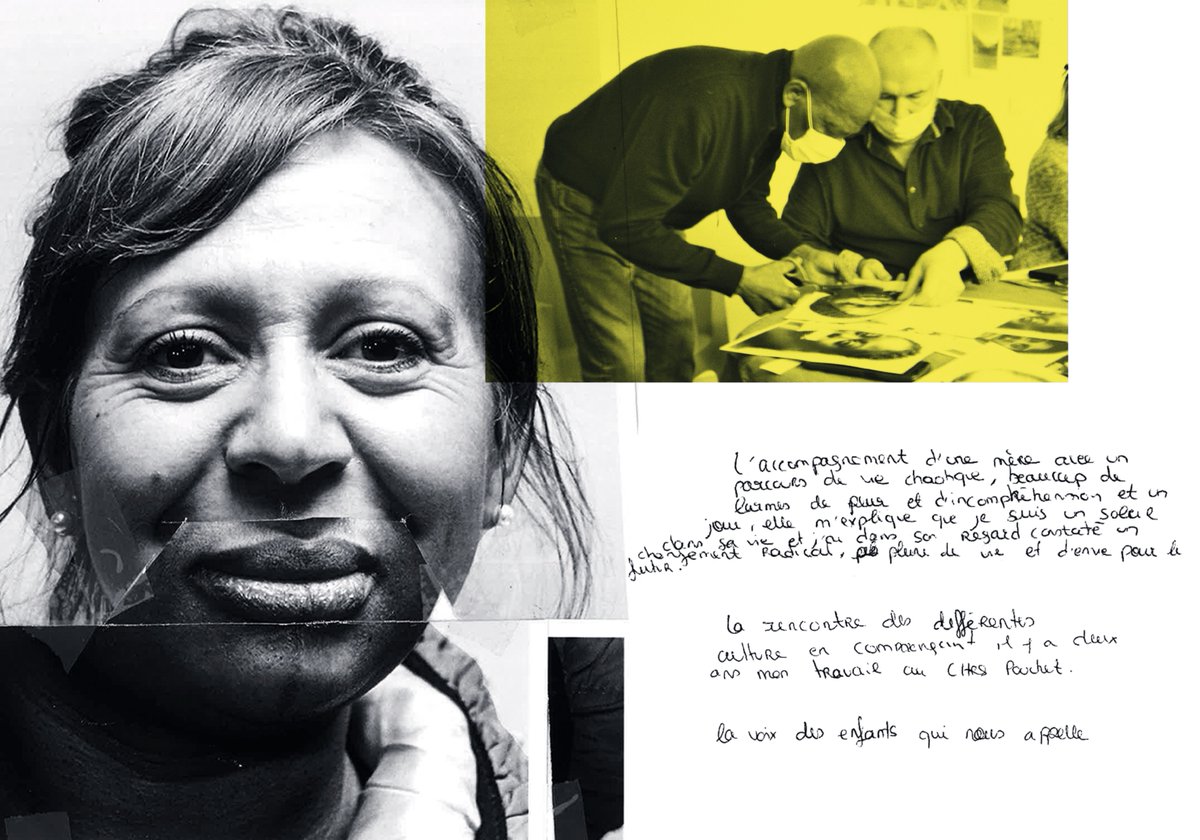 L'accompagnement d'une mère avec un
parcours de vie chaotique, beaucoup de
larmes de peur et d'incompréhension et un
jour, elle m'explique que je suis un soleil
dans sa vie et j'ai dans son regard constaté un
changement radical, pleine de vie et d'envie pour le
futur.
La rencontre des différentes
culture en commençant il y a deux
ans mon travail au CHRS Pouchet.
La voix des enfants qui nous appelle